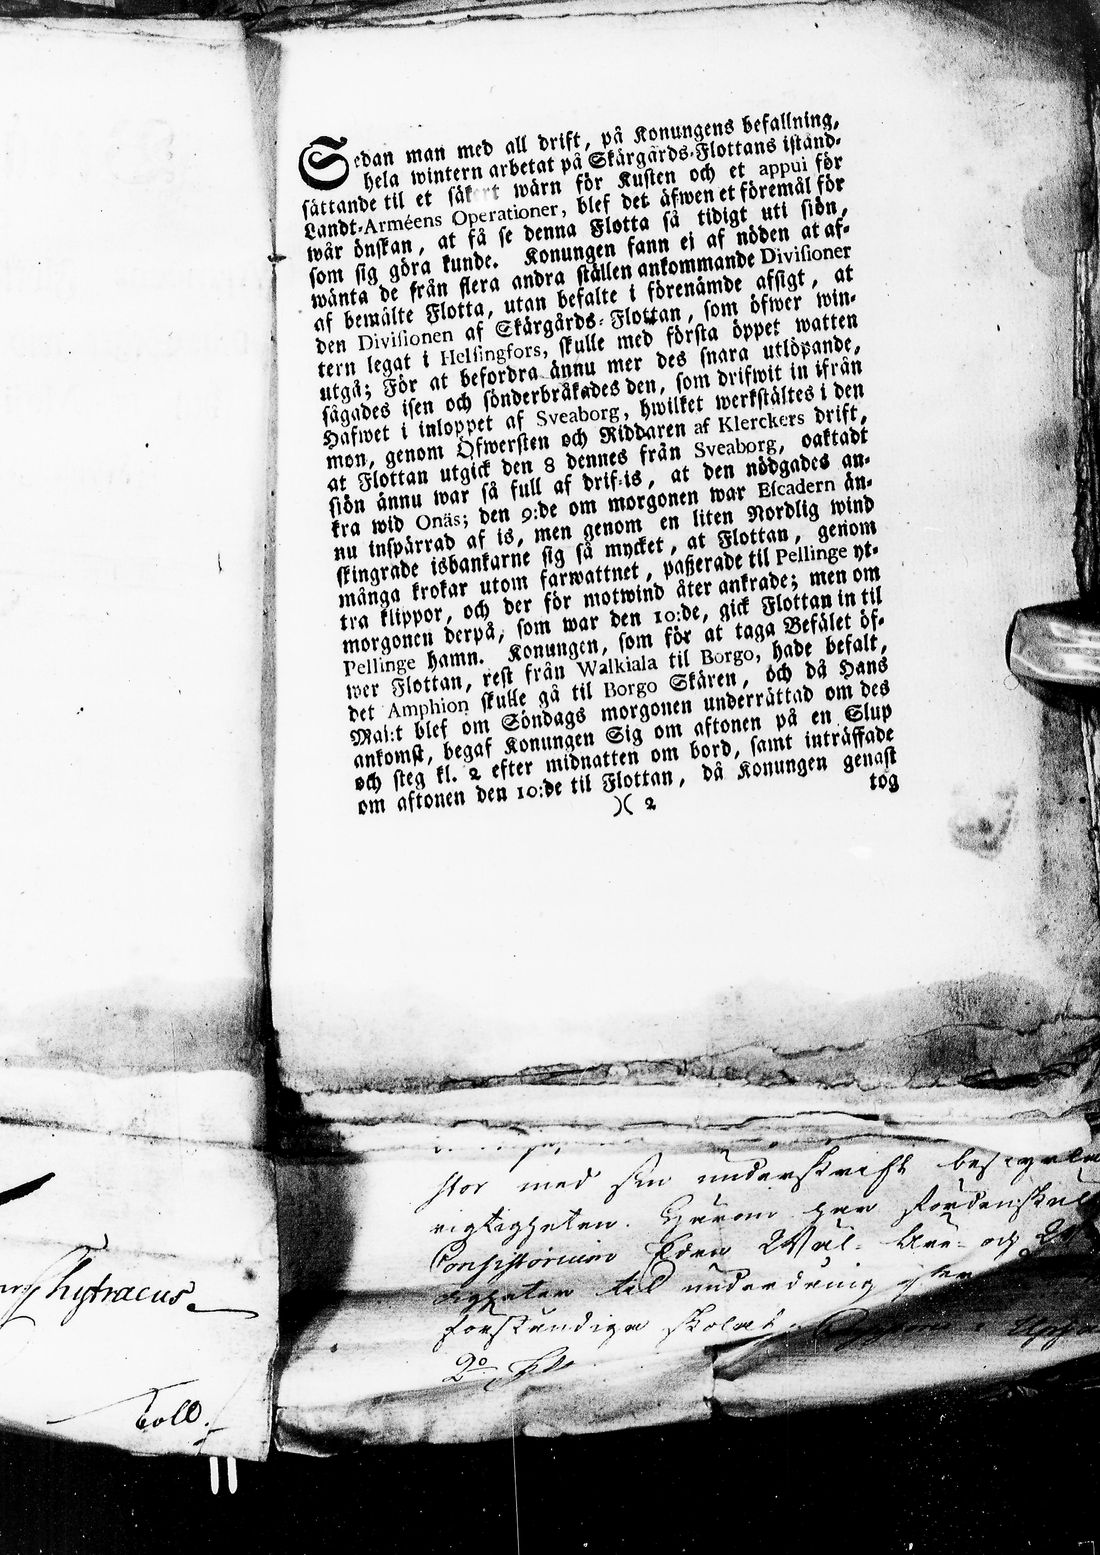 Sedan man med all drift, på Konungens befallning,
hela wintern arbetat på Skärgårds-Flottans istånd-
sättande til et säkert wärn för Kusten och et appui för
Landt-Arméens Operationer, blef det äfwen et föremål för
wår önskan, at få se denna Flotta så tidigt uti siön,
som sig göra kunde. Konungen fann ej af nöden at af-
wänta de från flera andra ställen ankommande Divisioner
af bemälte Flotta, utan befalte i förenämde afsigt, at
den Divisionen af Skärgårds-Flottan, som öfwer win-
tern legat i Helsingfors, skulle med första öppet watten
utgå; För at befordra ännu mer des snara utlöpande,
sågades isen och sönderbråkades den, som drifwit in ifrån
Hafwet i inloppet af Sveaborg, hwilket werkstältes i den
mon, genom Öfwersten och Riddaren af Klerckers drift,
at Flottan utgick den 8 dennes från Sveaborg, oaktadt
siön ännu war så full af drif-is, at den nödgades an-
kra wid Onäs; den 9:de om morgonen war Escadern än-
nu inspärrad af is, men genom en liten Nordlig wind
skingrade isbankarne sig så mycket, at Flottan, genom
många krokar utom farwattnet, paßerade til Pellinge yt-
tra klippor, och der för motwind åter ankrade; men om
morgonen derpå, som war den 10:de, gick Flottan in til
Pellinge hamn. Konungen, som för at taga Befälet öf-
wer Flottan, rest från Walkiala til Borgo, hade befalt,
det Amphion skulle gå til Borgo Skären, och då Hans
Maj:t blef om Söndags morgonen underrättad om des
ankomst, begaf Konungen Sig om aftonen på en Slup
och steg kl. 2 efter midnatten om bord, samt inträffade
om aftonen den 10:de til Flottan, då Konungen genast
)( 2 tog
stor med sin underskrift
rigtigheten.
Consistorium
til
Chytraeus
Toll.
2o